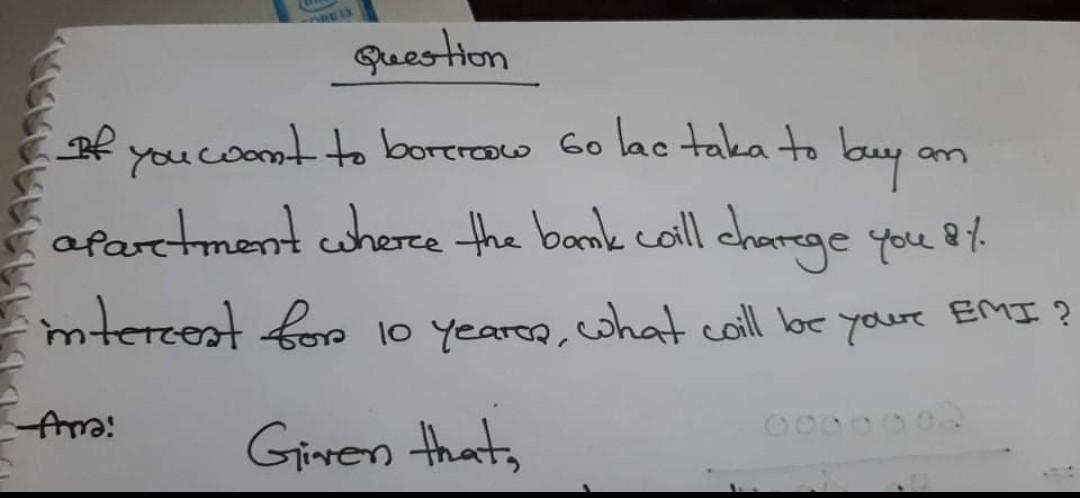 CORE i3
Question
If you want to borrow 60 lac taka to buy an
apartment where the bank will charge you 8%
interest for 10 years, what will be your EMI?
Ans:
Given that,